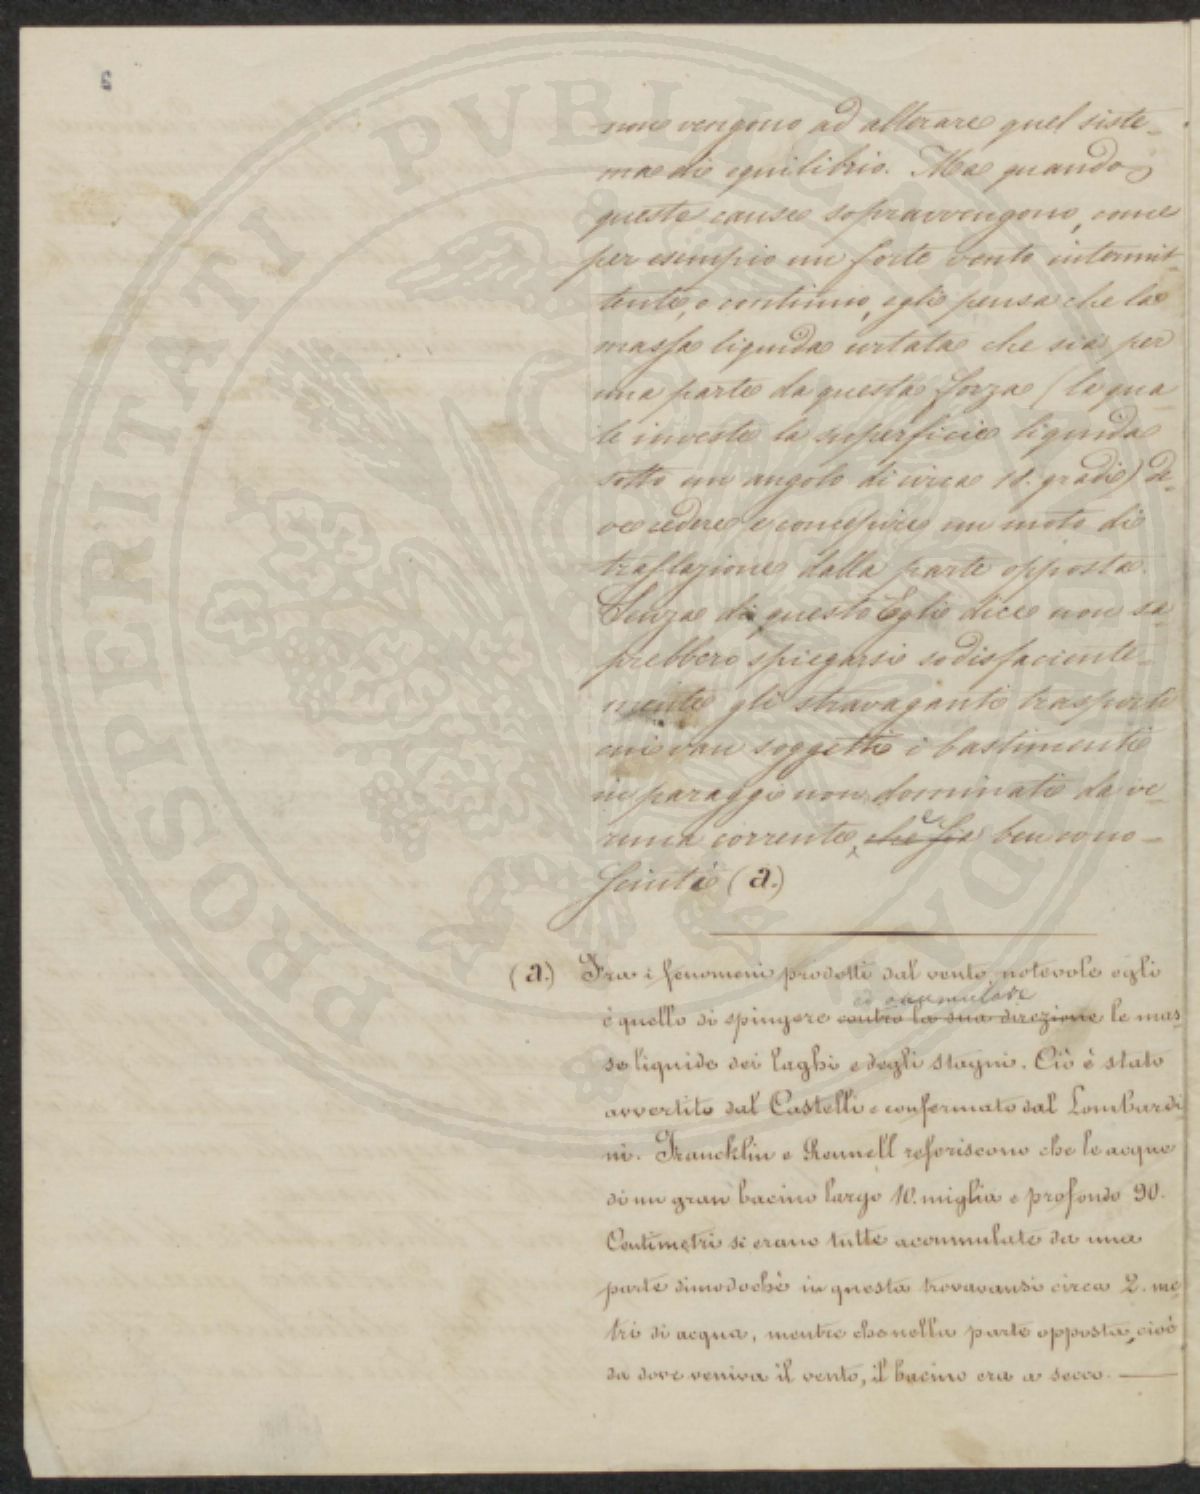 non vengono ad alterare quel siste-
ma di equilibrio. Ma quando
queste cause sopravvengono, come
per esempio un forte vento intermit-
tente, o continuo, egli pensa che la
massa liquida urtata che sia per
una parte da questa forza (la qua
le investe la superficie liquida
sotto un angolo di circa 18. gradi) de-
ve cedere e concepire un moto di
traslazione dalla parte opposta.
Senza di questo Egli dice non sa-
prebbero spiegarsi sodisfaciente-
mente gli stravaganti trasporti
cui van soggetti i bastimenti
in paraggi non dominati da ve-
runa corrente, che sia ben cono-
sciuti (a.)
(a.) Fra i fenomeni prodotti dal vento notevole egli
ed accumulare
è quello di spingere contro la sua direzione le mas-
se liquide dei laghi e degli stagni. Ciò è stato
avvertito dal Castelli e confermato dal Lombardi-
ni. Francklin e Rennell referiscono che le acque
di un gran bacino largo 10. miglia e profondo 90.
Centimetri si erano tutte accumulate da una
parte dimodochè in questa trovavansi circa 2. me-
tri di acqua, mentre che nella parte opposta, cioè
da dove veniva il vento, il bacino era a secco.
PROSPERITATI PVBLICAE